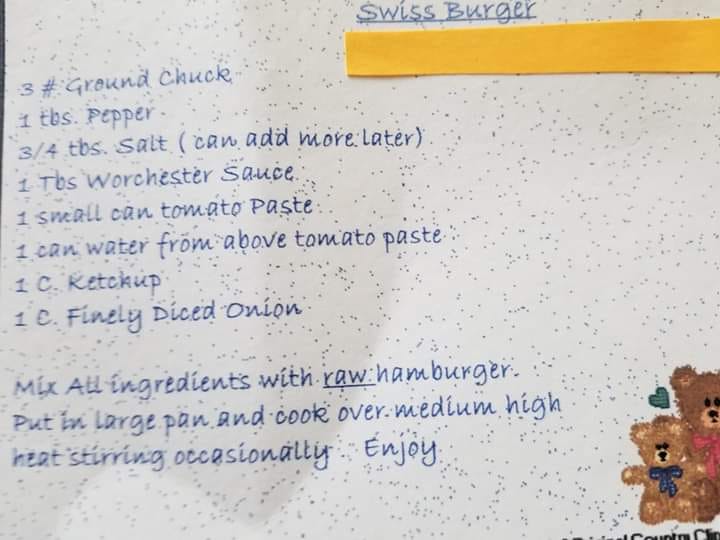 Swiss Burger
3 # Ground Chuck
1 tbs. Pepper
3/4 tbs. Salt ( can add more later)
1 Tbs Worchester Sauce
1 small can tomato Paste
1 can water from above tomato paste
1 C. Ketchup
1 C. Finely Diced Onion
Mix All ingredients with raw hamburger.
Put in large pan and cook over medium high
heat stirring occasionally. Enjoy
Country